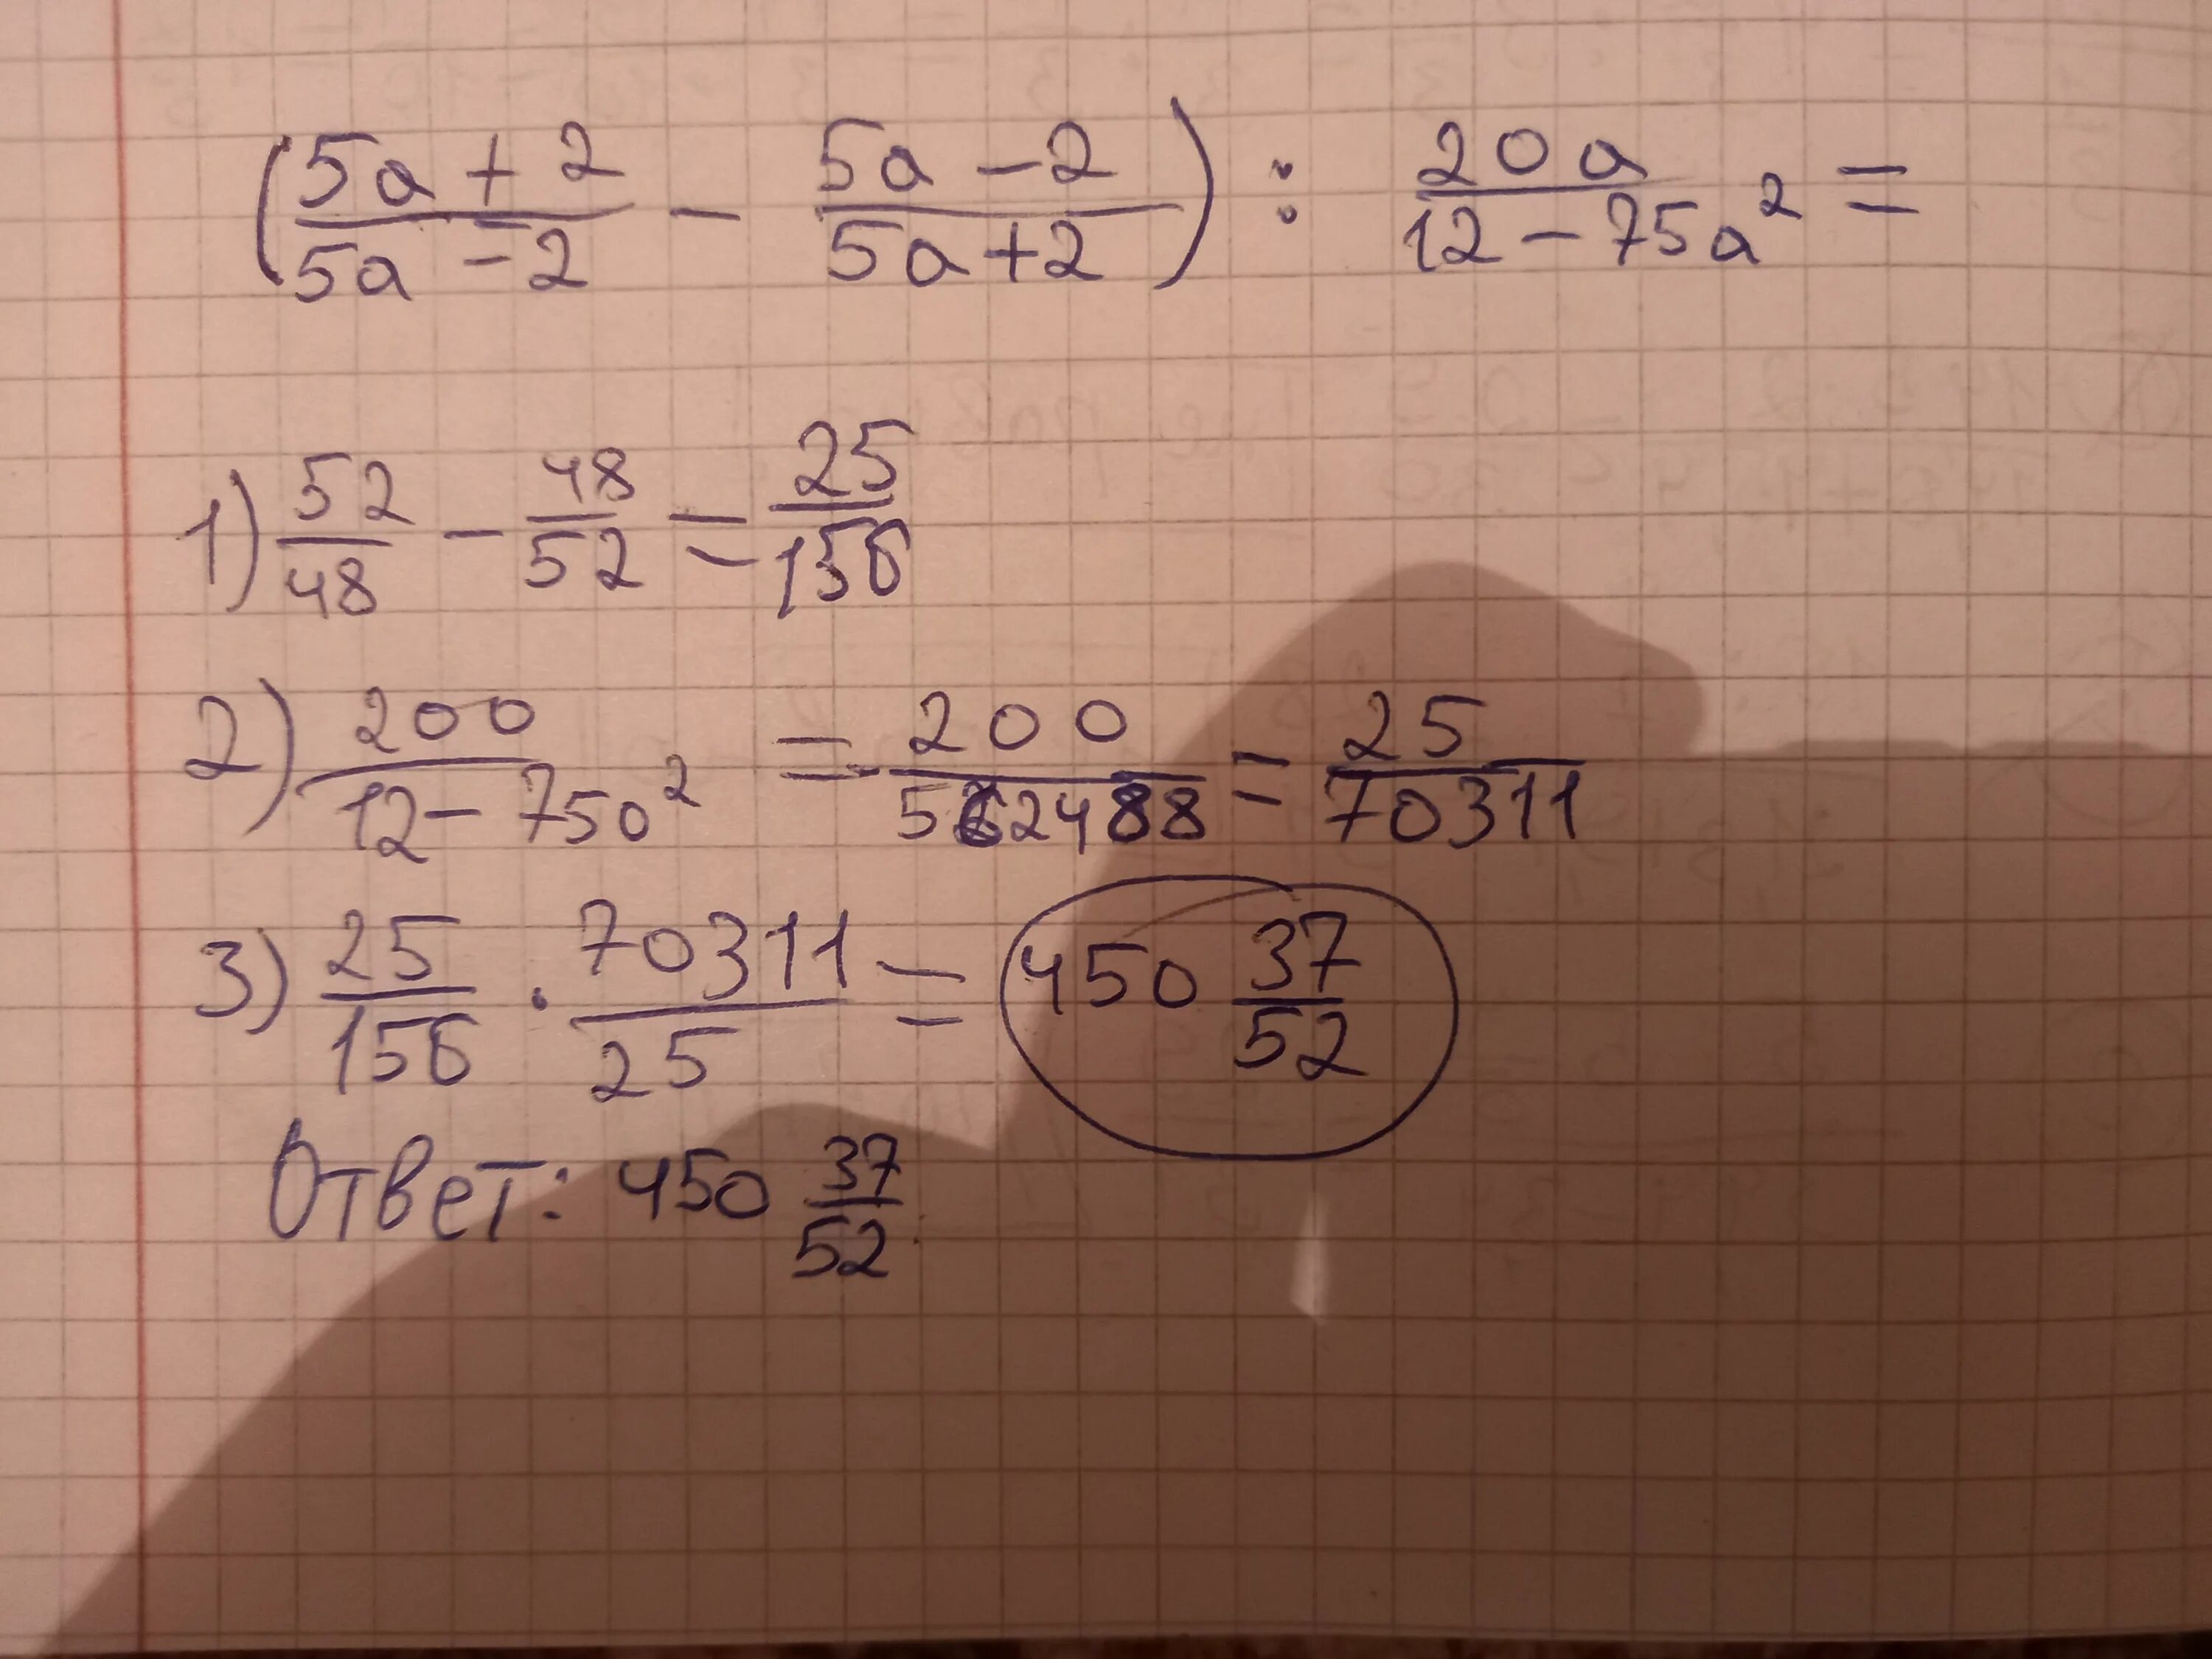 (5a+2/5a-2 - 5a-2/5a+2) : 20a/12-75a² =
1) 52/48 - 48/52 = 25/156
2) 200/12-750² = -200/562488 = 25/70311
3) 25/156 · 70311/25 = 450 37/52
Ответ: 450 37/52